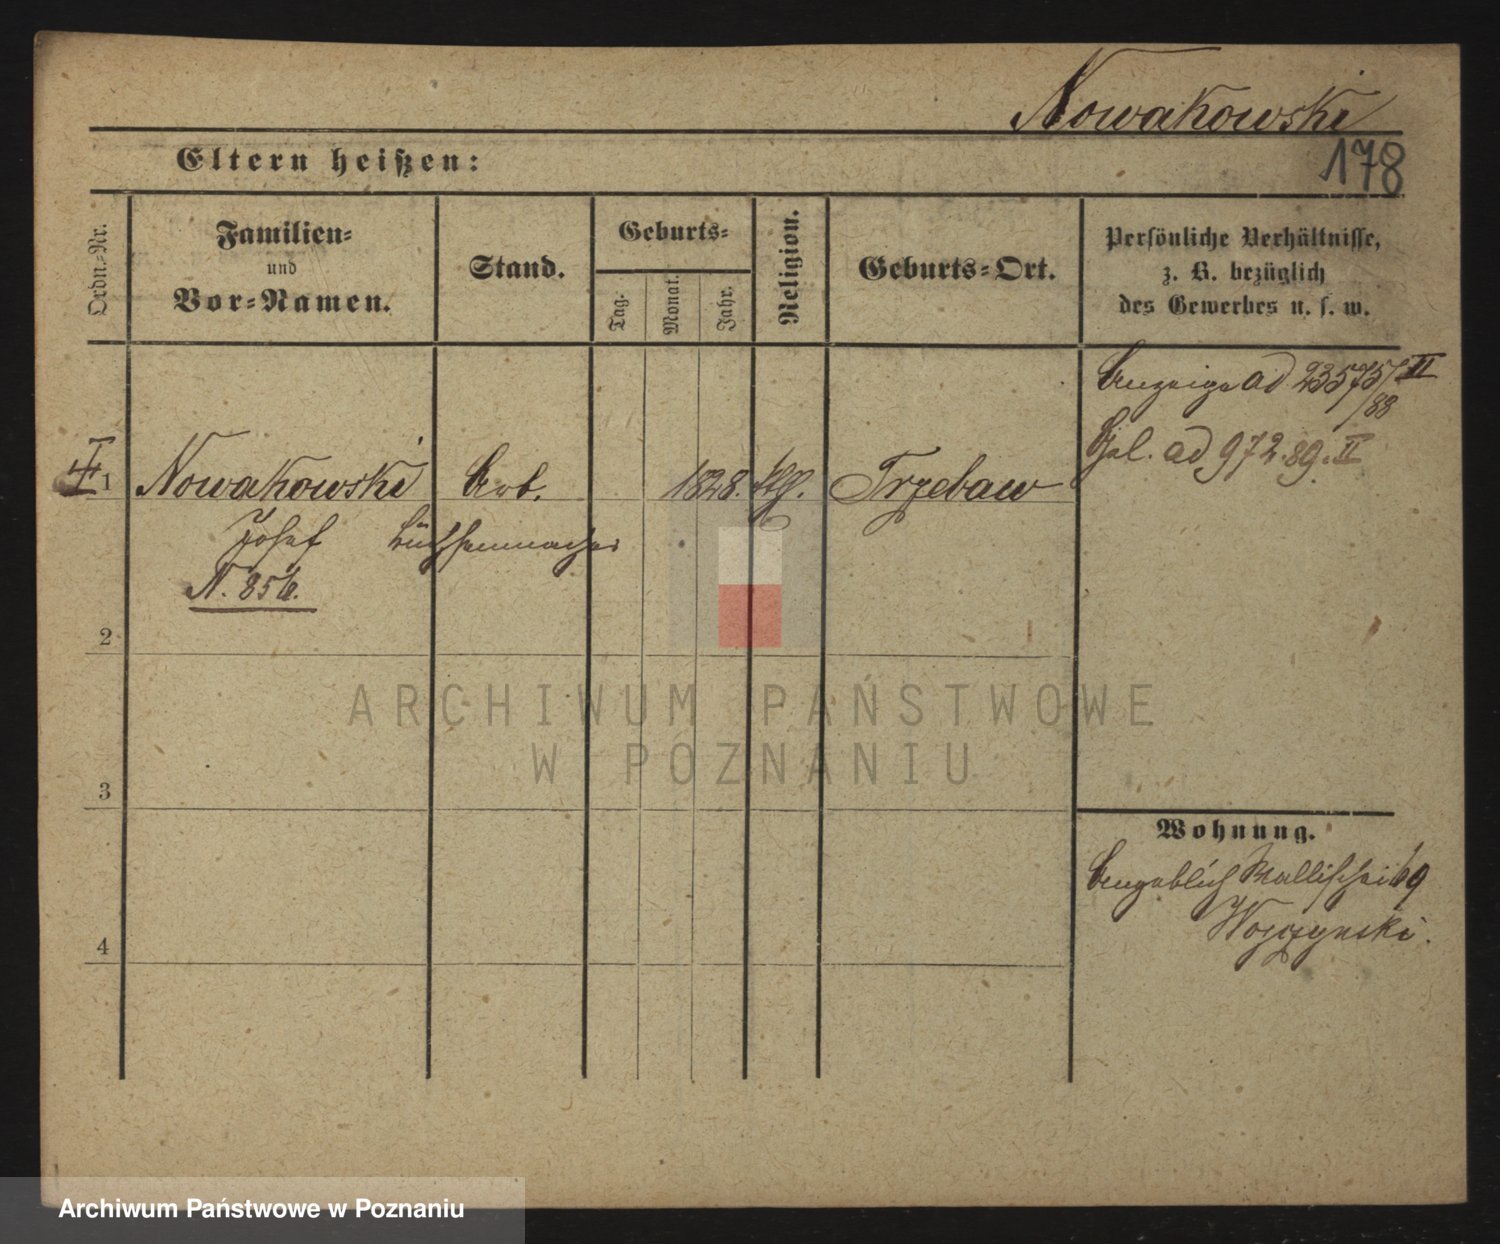 Nowakowski
178
Eltern heißen:
Ordn.-Nr.
Familien-
und
Vor-Namen.
Stand.
Geburts-
Tag.
Monat.
Jahr.
Religion.
Geburts-Ort.
Persönliche Verhältnisse,
z. B. bezüglich
des Gewerbes u. s. w.
Anzeige ad 23575/II
/88
Gel. ad 972.89.II
1 Nowakowski Arb. 1828. Trzebaw
Josef
N. 856.
2
3
4
Wohnung.
Angeblich Wallischei 69
ARCHIWUM PAŃSTWOWE
W POZNANIU
Archiwum Państwowe w Poznaniu